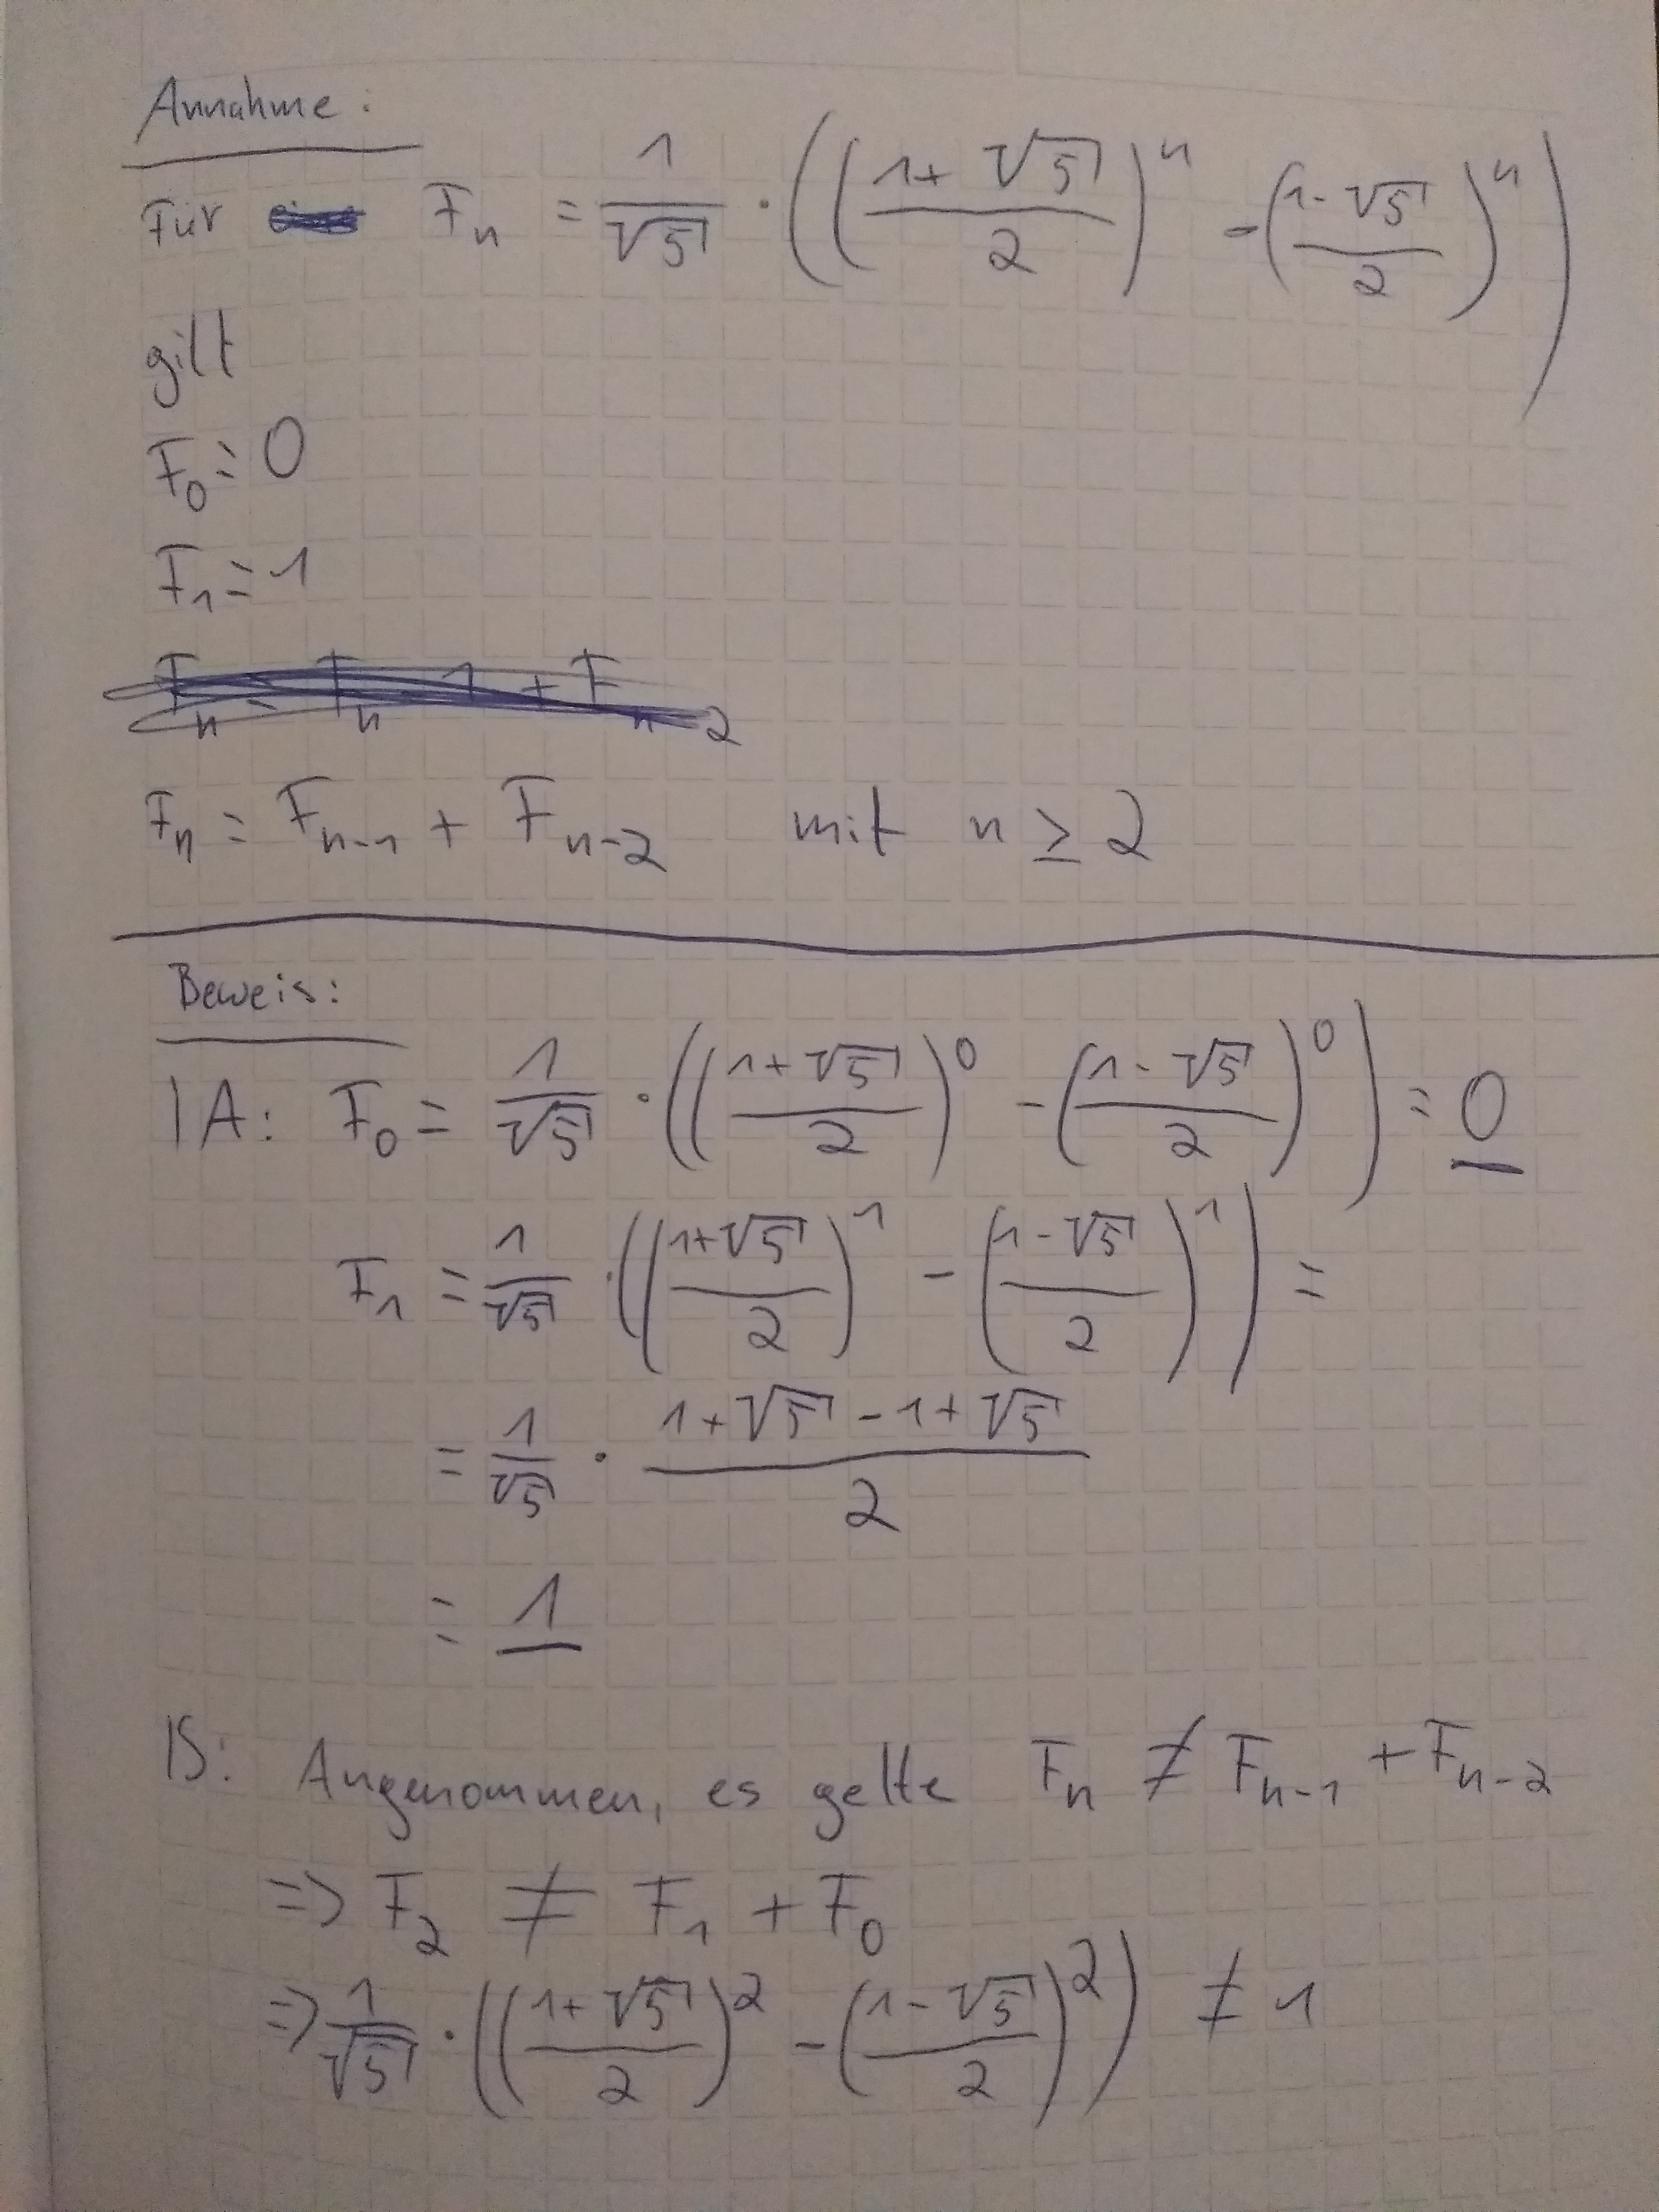 Annahme:
Für F_n = 1/√5 · (((1+√5)/2)^n - ((1-√5)/2)^n)
gilt
F_0 = 0
F_1 = 1
F_n = F_n-1 + F_n-2
F_n = F_{n-1} + F_{n-2} mit n ≥ 2
Beweis:
IA: F_0 = 1/√5 · (((1+√5)/2)^0 - ((1-√5)/2)^0) = 0
F_1 = 1/√5 · (((1+√5)/2)^1 - ((1-√5)/2)^1) =
= 1/√5 · (1+√5-1+√5)/2
= 1
IS: Angenommen, es gelte F_n ≠ F_{n-1} + F_{n-2}
=> F_2 ≠ F_1 + F_0
=> 1/√5 · (((1+√5)/2)^2 - ((1-√5)/2)^2) ≠ 1